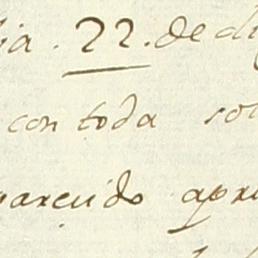 dia. 22. de di
con toda so
parecido apr